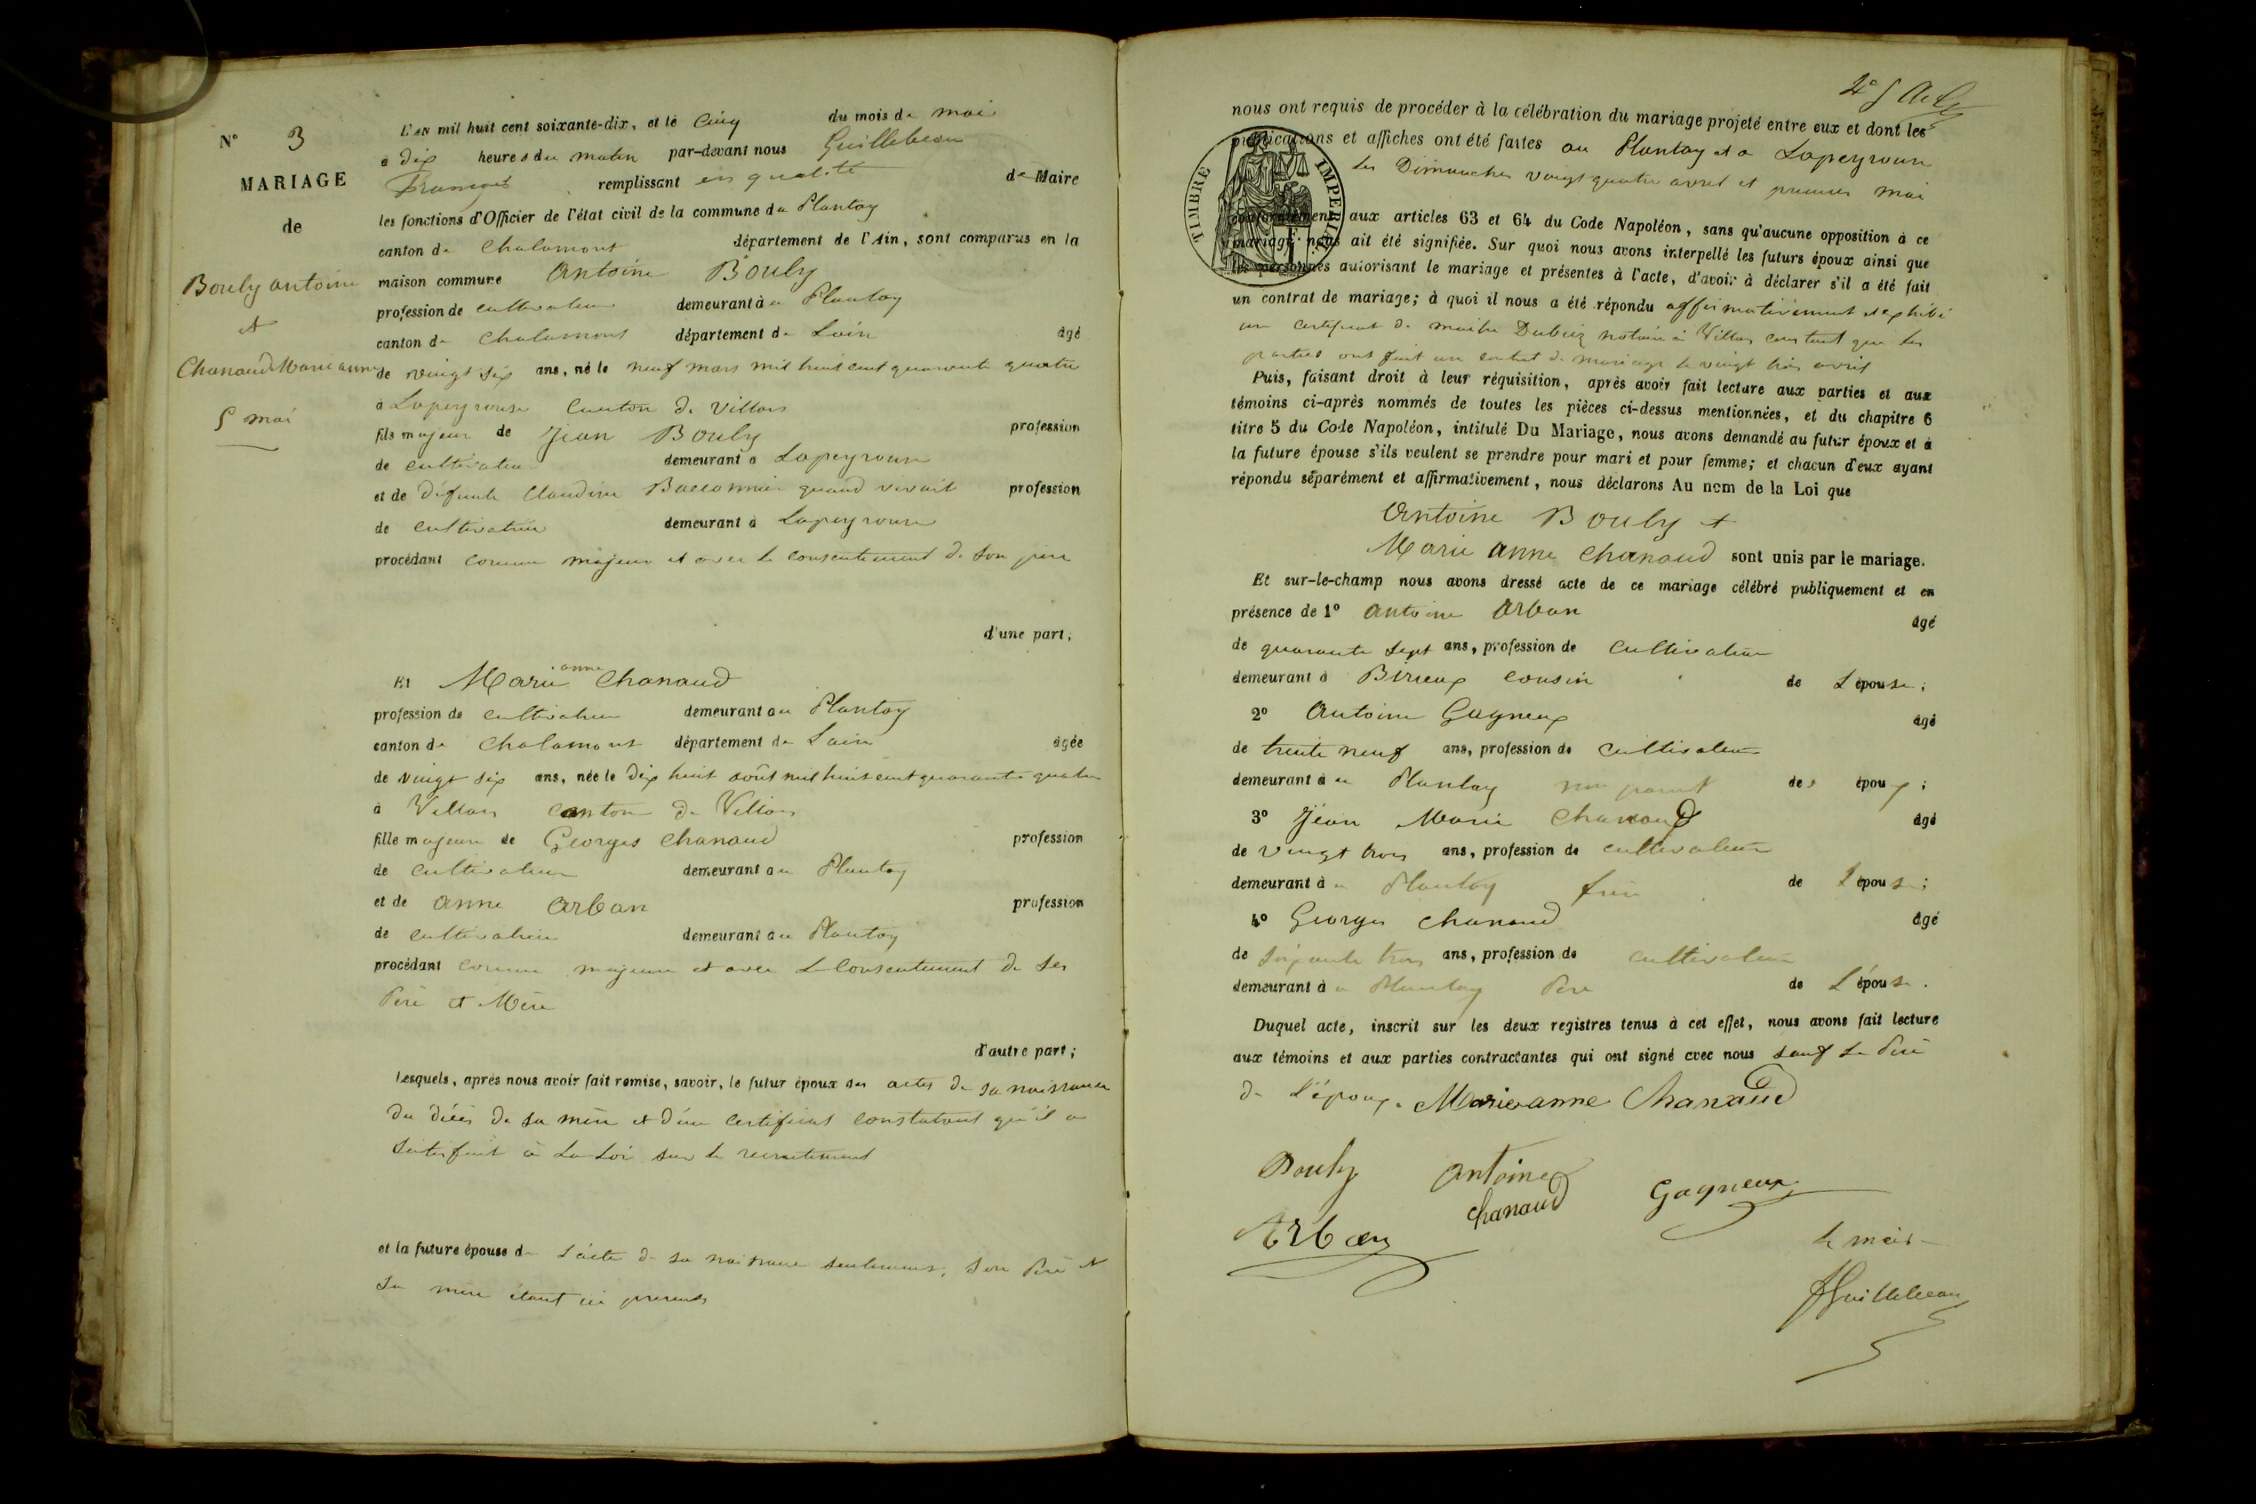 N° 3
MARIAGE
de
Bouly antoine
et
Chanaud Marie anne
5 mai
L'AN mil huit cent soixante-dix, et le Cinq du mois de mai
à dix heures du matin par-devant nous Guillebeau
François remplissant en qualité de Maire
les fonctions d'Officier de l'état civil de la commune du Plantay
canton de Chalamont département de l'Ain, sont comparus en la
maison commune Antoine Bouly
profession de cultivateur demeurant à u Plantay
canton de Chalamont département de Lain âgé
de vingt six ans, né le neuf mars mil huit cent quarante quatre
à Lapeyrouse Canton de Villars
fils majeur de Jean Bouly profession
de cultivateur demeurant à Lapeyrouse
et de défunte Claudine quand vivait profession
de cultivatrice demeurant à Lapeyrouse
procédant comme majeur et avec le consentement de son père
d'une part;
Et Marie anne Chanaud
profession de cultivatrice demeurant au Plantay
canton de Chalamont département de Lain âgée
de vingt six ans, née le dix huit août mil huit cent quarante quatre
à Villars Canton de Villars
fille majeure de Georges Chanaud profession
de Cultivateur demeurant au Plantay
et de anne Arban profession
de cultivatrice demeurant au Plantay
procédant comme majeure et avec le Consentement de ses
Père et Mère
d'autre part;
Lesquels, après nous avoir fait remise, savoir, le futur époux des actes de sa naissance
du décès de sa mère et d'un certificat constatant qu'il a
satisfait à la Loi sur le recrutement
et la future épouse de l'acte de sa naissance seulement, son Père et
sa mère étant ici présents
nous ont requis de procéder à la célébration du mariage projeté entre eux et dont les
publications et affiches ont été faites au Plantay et a Lapeyrouse
les Dimanches vingt quatre avril et premier mai
conformément aux articles 63 et 64 du Code Napoléon, sans qu'aucune opposition à ce
mariage nous ait été signifiée. Sur quoi nous avons interpellé les futurs époux ainsi que
les personnes autorisant le mariage et présentes à l'acte, d'avoir à déclarer s'il a été fait
un contrat de mariage; à quoi il nous a été répondu affirmativement et exhibé
un certificat de maitre notaire à Villars constatant que les
parties ont fait un contrat de mariage le vingt trois avril
TIMBRE IMPERIAL
Puis, faisant droit à leur réquisition, après avoir fait lecture aux parties et aux
témoins ci-après nommés de toutes les pièces ci-dessus mentionnées, et du chapitre 6
titre 5 du Code Napoléon, intitulé Du Mariage, nous avons demandé au futur époux et à
la future épouse s'ils veulent se prendre pour mari et pour femme; et chacun d'eux ayant
répondu séparément et affirmativement, nous déclarons Au nom de la Loi que
Antoine Bouly et
Marie anne Chanaud sont unis par le mariage.
Et sur-le-champ nous avons dressé acte de ce mariage célébré publiquement et en
présence de 1° Antoine Arban âgé
de quarante sept ans, profession de Cultivateur
demeurant à Birieux cousin de L'épouse;
2° Antoine Gagneux âgé
de trente neuf ans, profession de cultivateur
demeurant à u Plantay non parent des époux;
3° Jean Marie Chanaud âgé
de vingt trois ans, profession de cultivateur
demeurant à u Plantay frère de L'épouse;
4° Georges Chanaud âgé
de soixante trois ans, profession de cultivateur
demeurant à u Plantay Père de L'épouse.
Duquel acte, inscrit sur les deux registres tenus à cet effet, nous avons fait lecture
aux témoins et aux parties contractantes qui ont signé avec nous sauf le Père
de l'époux. Marie anne Chanaud
Bouly Antoine
Chanaud Gagneux
Arban
le maire
fGuillebeau